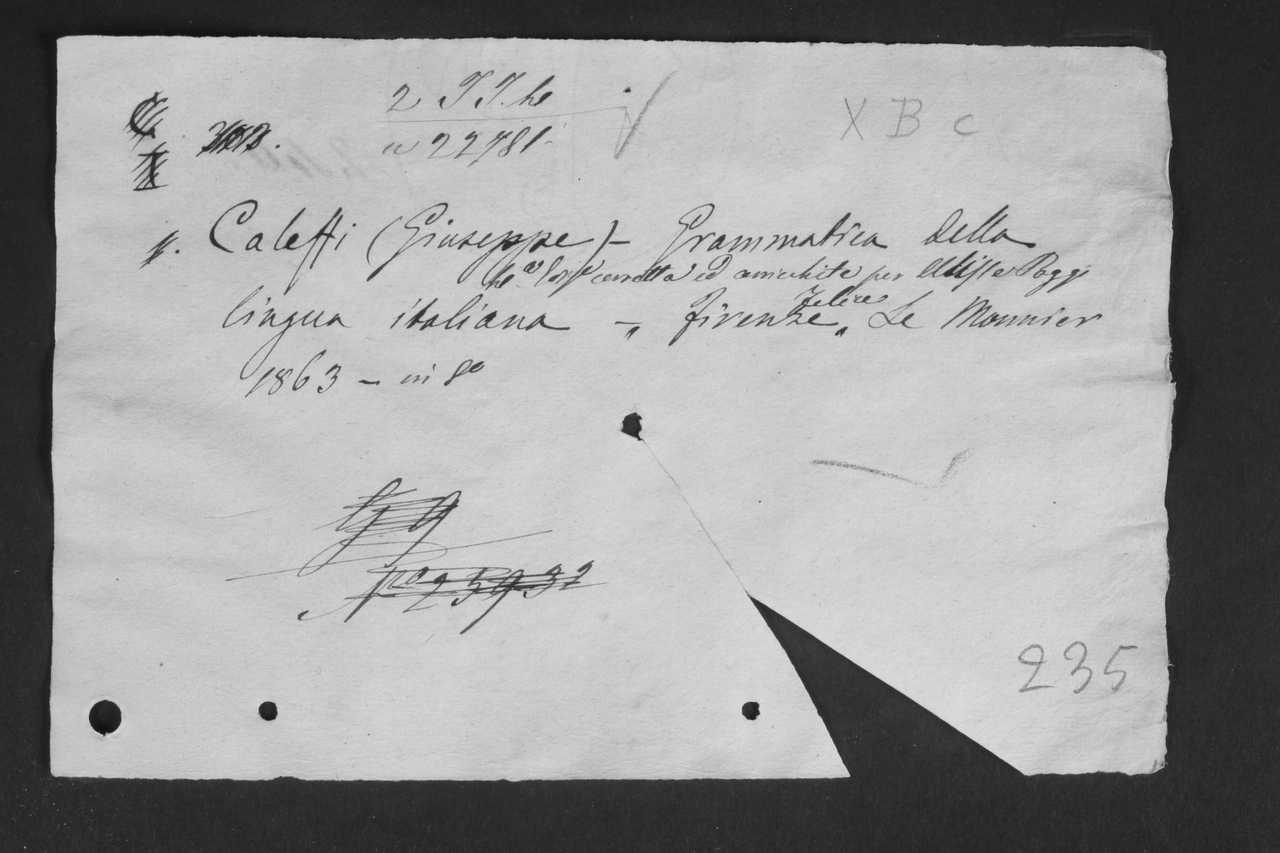 2 T T. he
a 22781
X B C
Caleffi (Giuseppe) – Grammatica della
corretta ed arricchita per Ulisse Poggi
lingua italiana – „ Firenze „ Felice Le Monnier
1863 – in 8º
Nº 25932
235